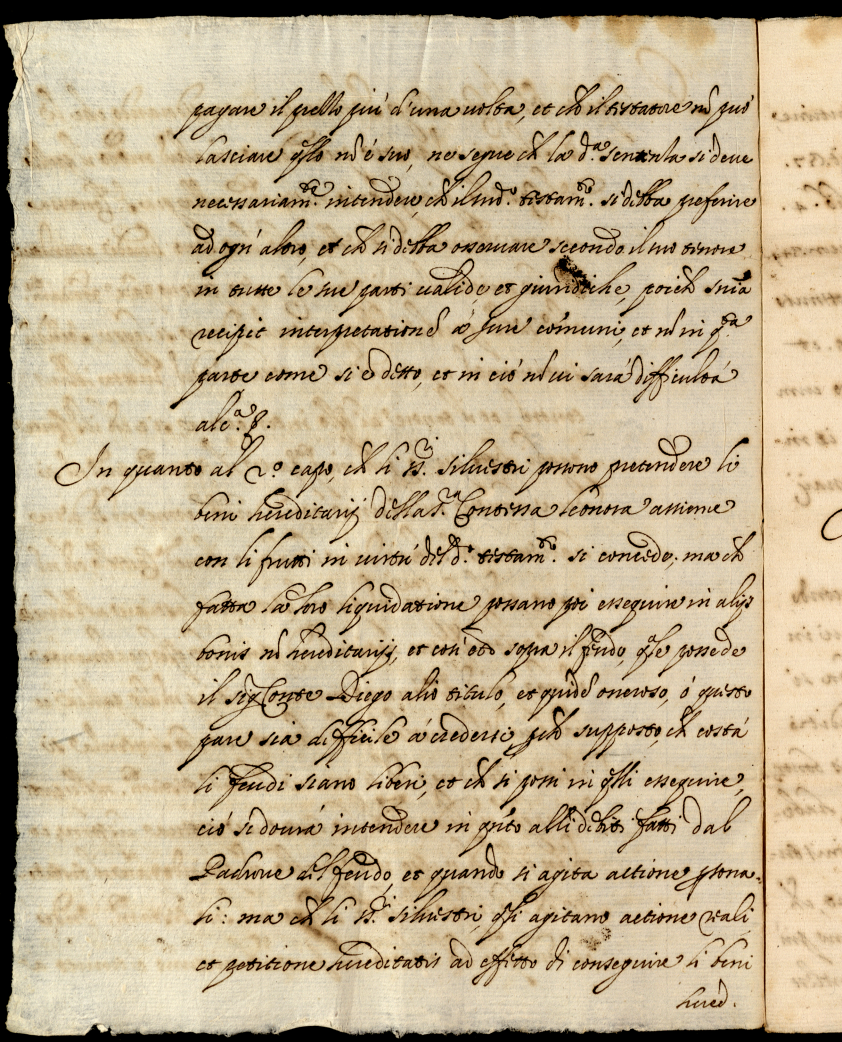 pagare il prezzo più d'una uolta, et ch il testatore nõ può
lasciare qllo nõ é suo, ne segue ch la d.ª sentenza si deue
necessariam.te intendere, ch il sud.º testam.to si debba preferire
ad ogn' altro, et ch si debba osseruare secondo il suo tenore
in tutte le sue parti ualide et giuridiche, poich snia
recipit interpretationẽ á Jure comuni, et nõ in q.ta
parte come si é detto, et in ció nõ ui sará difficultá
alc.ª
In quanto al 2º capo, ch li SS.ri Siluestri possono pretendere li
beni hereditarij della S.ra Contessa Leonora assieme
con li frutti in uirtú del d.º testam.to si concede. ma ch
fatta la loro liquidatione possano poi esseguire in alijs
bonis nõ hereditarijs, et sopra il feudo, qle possede
il sig Conte Diego alio titulo, et quidẽ oneroso, ó questo
pare sia difficile á credersi pch supposto, ch costá
li feudi siano liberi, et ch si possi in qlli esseguire,
ció si dourá intendere in qto alli debiti fatti dal
Padrone del feudo, et quando si agita actione psona-
li: ma ch li SS.ri Siluestri, qli agitano actione reali
et petitione hereditatis ad effetto di conseguire li beni
hered.